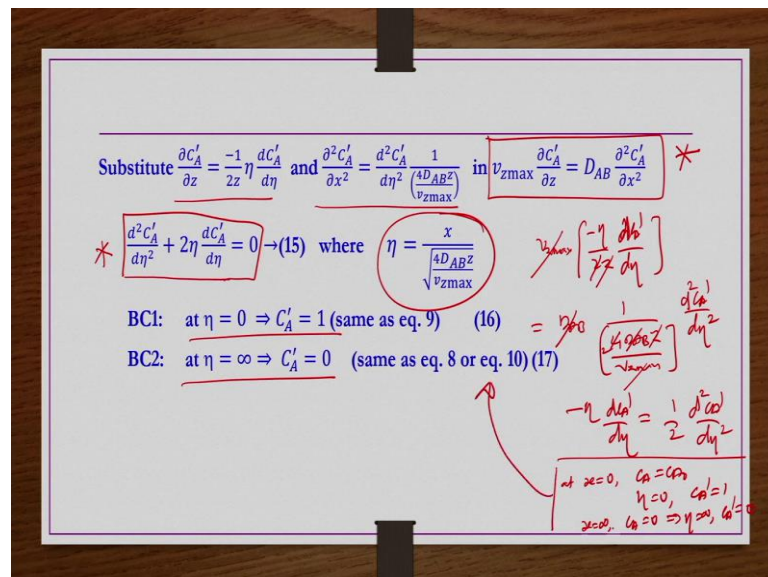 Substitute ∂C′_A/∂z = −1/2z η dC′_A/dη and ∂²C′_A/∂x² = d²C′_A/dη² 1/(4D_AB z/v_zmax) in v_zmax ∂C′_A/∂z = D_AB ∂²C′_A/∂x² *
* d²C′_A/dη² + 2η dC′_A/dη = 0 →(15) where η = x/√(4D_AB z/v_zmax)
v_zmax [−η/2z dC_A′/dη]
BC1: at η = 0 ⇒ C′_A = 1 (same as eq. 9) (16)
= D_AB 1/(4D_AB z/v_zmax) d²C_A′/dη²
BC2: at η = ∞ ⇒ C′_A = 0 (same as eq. 8 or eq. 10) (17)
−η dC_A′/dη = 1/2 d²C_A′/dη²
at x=0, C_A=C_A0
η=0, C_A′=1
x=∞, C_A=0 ⇒ η=∞, C_A′=0